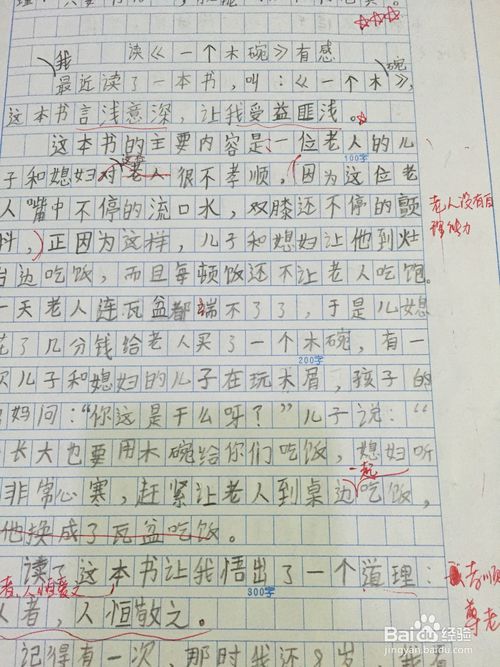 读《一个木碗》有感
我 碗
最近读了一本书,叫:《一个木》,
这本书言浅意深,让我受益匪浅。
这本书的主要内容是,一位老人的儿
100字
子和媳妇对老人很不孝顺,因为这位老
人嘴中不停的流口水,双膝还不停的颤
老人没有自
理能力
抖,正因为这样,儿子和媳妇让他到灶
台边吃饭,而且每顿饭还不让老人吃饱。
一天老人连瓦盆都端不了了,于是儿媳
花了几分钱给老人买了一个木碗,有一
200字
次儿子和媳妇的儿子在玩木屑,孩子的
妈问:“你这是干么呀?”儿子说:“
长大也要用木碗给你们吃饭,媳妇听
一起
非常心寒,赶紧让老人到桌边吃饭,
他换成了瓦盆吃饭。
读了这本书让我悟出了一个道理:
者人恒爱之
300字
孝顺
尊老
人者,人恒敬之。
记得有一次,那时我还8岁,
Baidu 经验
jingyan.baidu.com